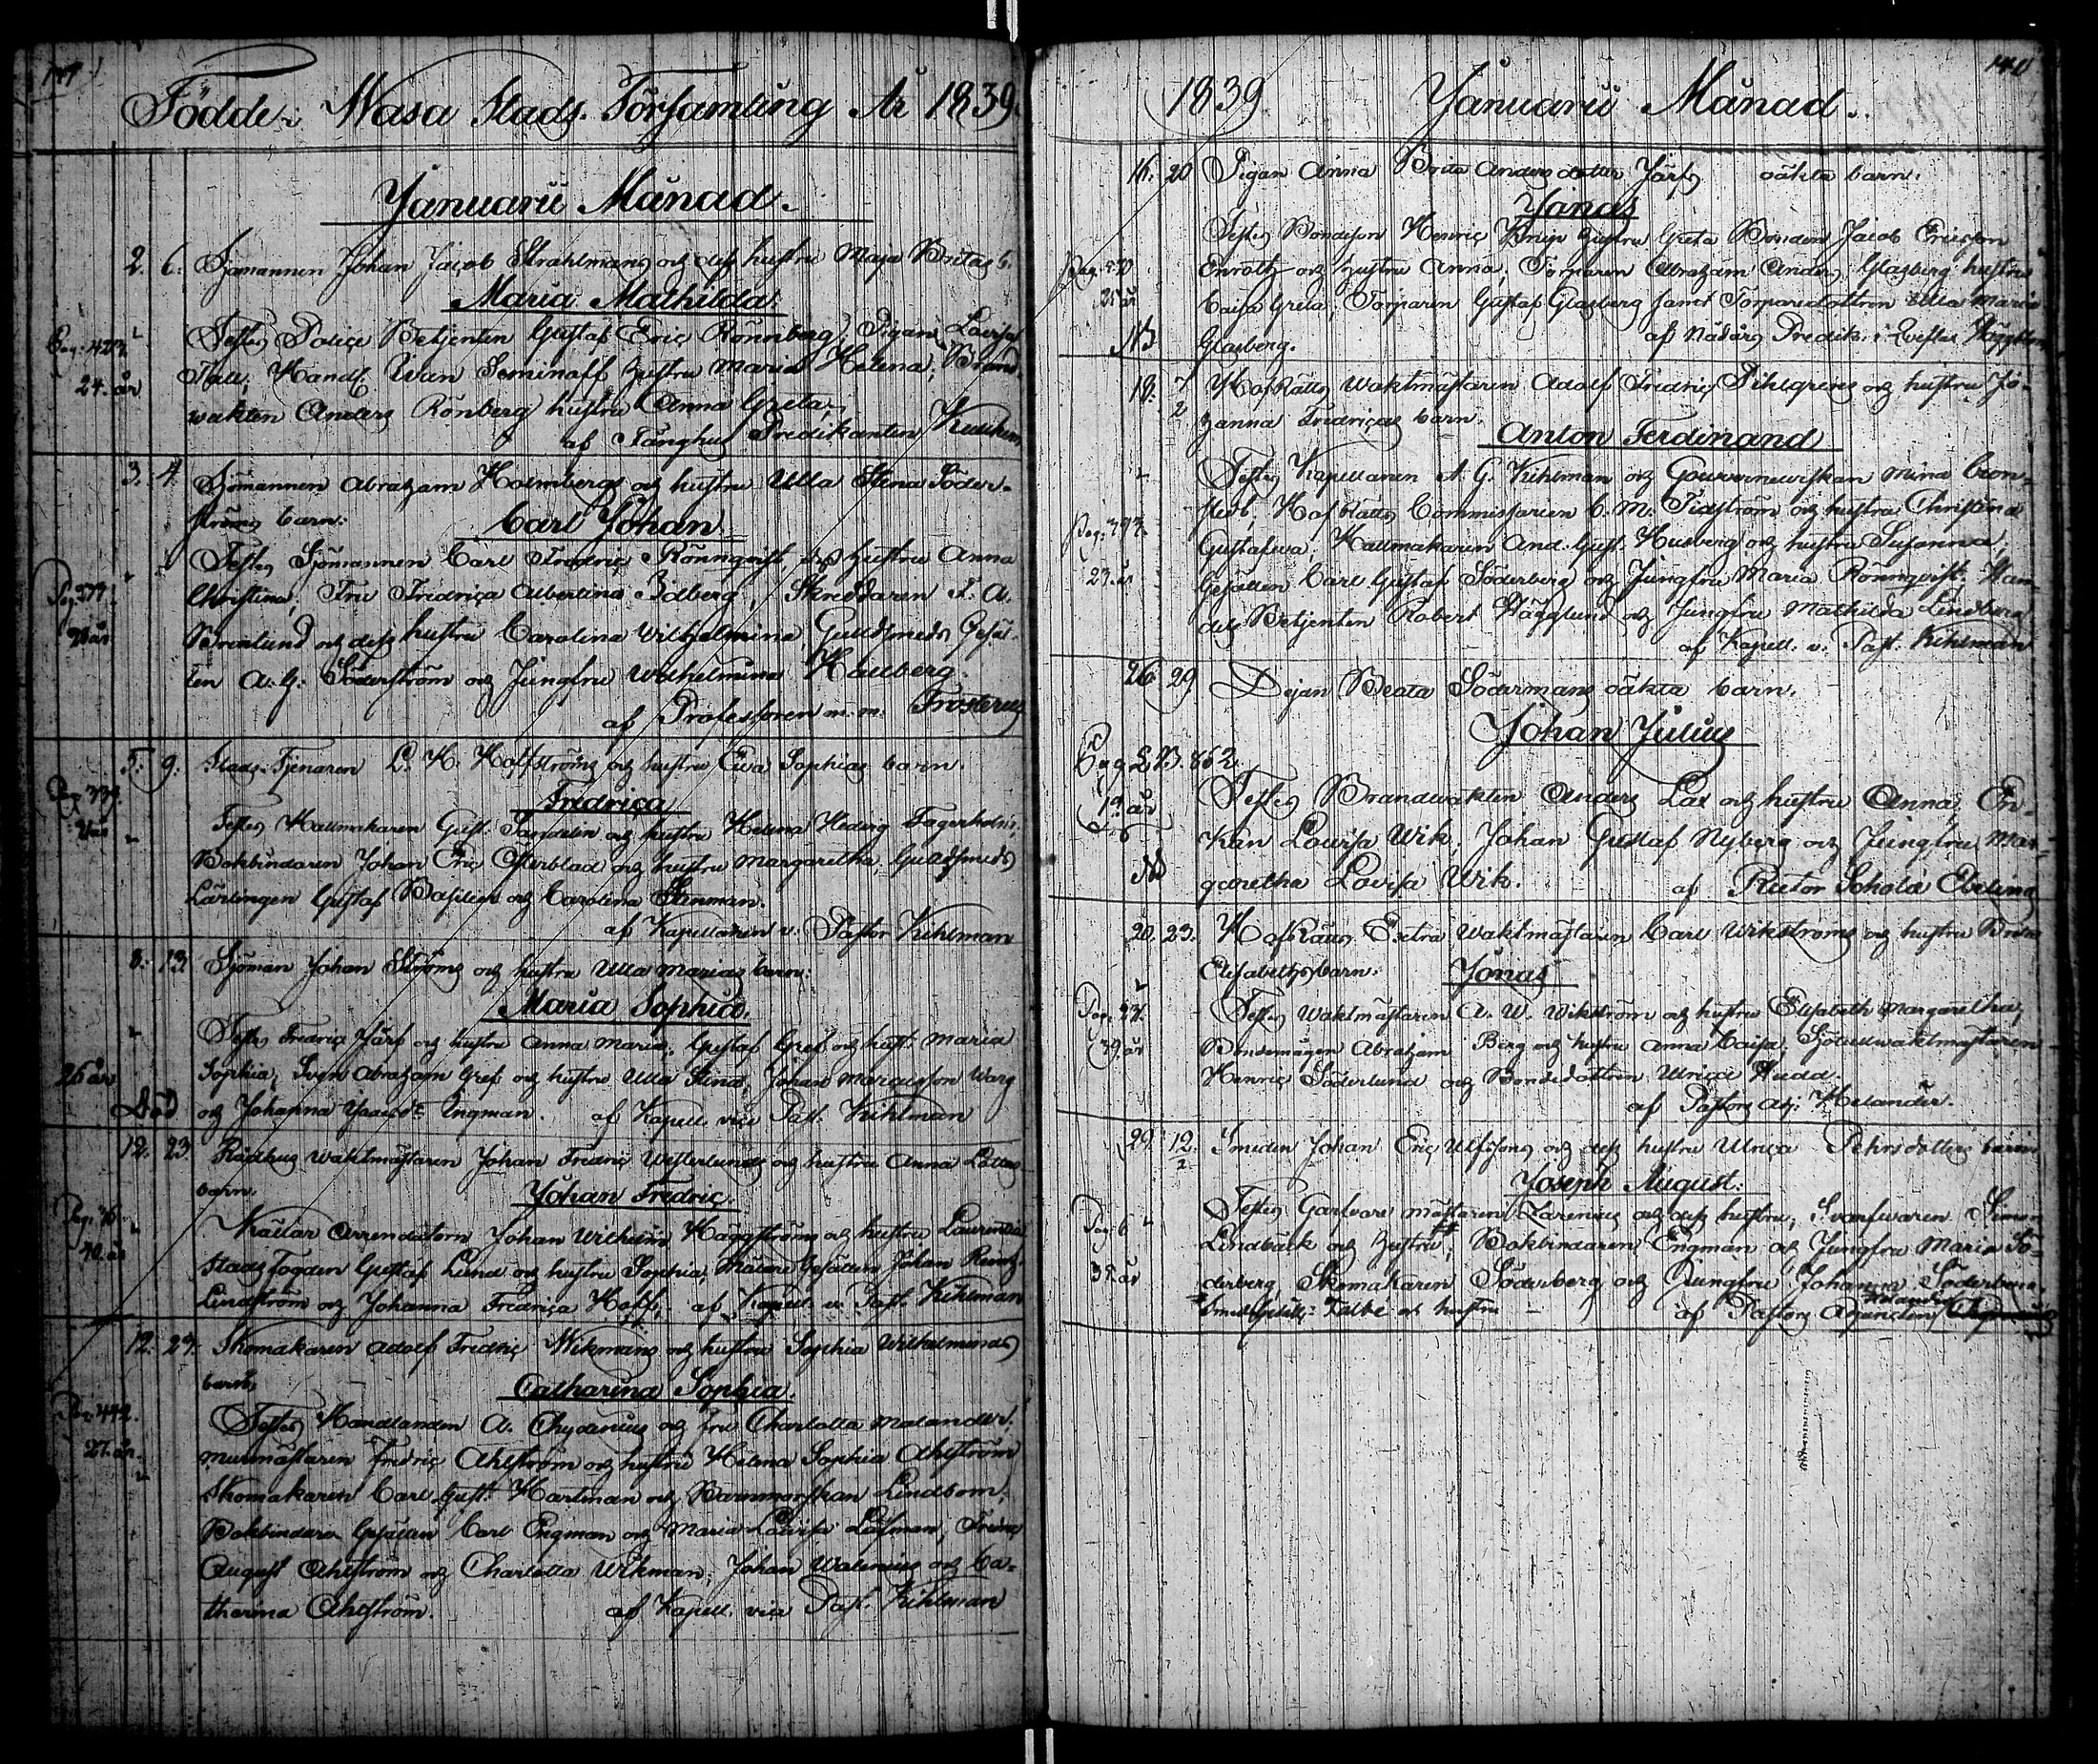 Födde i Wasa Stads Församling År 1839.
Januarii Månad.
2. 6. Sjömannen Johan Jacob Strahlmans och dess hustru Maja Britas b.
Maria Mathilda.
Pag. 423. Testes Police Betjenten Gustaf Eric Rönnberg, Pigan Lovisa
24. år Handl. Iwan Seminoff hustru Maria Helena; Brand-
wakten Anders Rönberg hustru Anna Greta,
af Fånghus Predikanten
3. 4. Sjömannen Abraham Holmbergs och hustru Ulla Stena Söder-
ströms barn:
Carl Johan
Testes Sjömannen Carl Fredric Rönnqvist, dess hustru Anna
Christina, Fru Fredrica Albertina Zidberg, Skreddaren F. A.
och dess hustru Carolina Wilhelmina, Guldsmeds Gesäl-
len A. G. Söderström och Jungfru Wilhelmina Hallberg.
af Professoren m. m. Frosterus
5. 9. Stads-Tjenaren L. H. Holfströms och hustru Ewa Sophias barn.
Pag. 339. Fredrica
Testes Hattmakaren Gust. Sandelin och hustru Helena Hedvig Fagerholm;
Bokbindaren Johan Eric Österblad och hustru Margaretha, Guldsmeds
Lärlingen Gustaf Basilier och Carolina Stenman.
af Kapellanen v. Pastor Kihlman
8. 13. Sjöman Johan Ströms och hustru Ulla Marias barn:
Maria Sophia.
Testes Fredric Järf och hustru Anna Maria; Gustaf Gref och hust. Maria
26 år Sophia, Sven Abraham Gref och hustru Ulla Stena, Johan Marcusson Warg
Död och Johanna Ingman. af Kapell. vice Past. Kihlman
12. 23. Rådhus waktmästaren Johan Fredric Westerlunds och hustru Anna Lottas
barn.
Johan Fredric.
Källar Arrendatorn Johan Wilhelm Häggströms och hustru Laurentia
40. år Stadsfogden Gustaf Lund och hustru Sophia, Målare Gesällen Johan
Lindström och Johanna Fredrica Hoff; af Kapell. v. Past. Kihlman
12. 27. Skomakaren Adolf Fredric Wikmans och hustru Sophia Wilhelminas
barn,
Catharina Sophia.
Pag. 442. Testes Handlanden A. Chydenius och Fru Charlotta Malander,
27. år. murmästaren Fredric Ahlström och hustru Helena Sophia Ahlström
Skomakaren Carl Gust. Hartman och Barnmorskan Lindbom,
Bokbindare Gesällen Carl Engman och Maria Lovisa Löfman,
August Ahlström och Charlotta Wikman; Johan Walenius och Ca-
tharina Ahlström. af Kapell. vice Past. Kihlman
140
1839. Januarii Månad.
16. 20 Pigan Anna Brita Andersdotter Järfs oäkta barn.
Jonas
Testes Bondeson Henric hustru Greta Bonden Jacob Ericsson
Enrotts och hustru Anna; Torparen Abraham Anders. Glasberg hustru
Caisa Greta, Torparen Gustaf Glasberg samt Torparedottren Ulla Maria
Glasberg. af Nådårs Predik.
18. 7/2 HofRätts Waktmästaren Adolf Fredric Pihlgrens och hustru Jo-
hanna Fredricas barn.
Anton Ferdinand
Testes Kapellanen A. G. Kihlman och Gouverneurskan Mina Cron-
stedt, HofRätts Commissarien C. M. Tidström och hustru Christina
Gustafwa, Hattmakaren And. Gust. Husberg och hustru Susanna,
23. år Gesällen Carl Gustaf Söderberg och Jungfru Maria Rönnqvist. Han-
dels Betjenten Robert Hägglund och Jungfru Mathilda Lindberg
af Kapell. v. Past. Kihlman
26. 29 Dejan Beata Södermans oäkta barn.
Johan Julius
Testes Brandwakten Anders Lax och hustru Anna, En-
kan Lovisa Wik, Johan Gustaf Nyberg och Jungfru Mar-
garetha Lovisa Wik. af Rector Scholæ Ebeling
20. 23. HofRätts Extra Waktmästaren Carl Wikströms och hustru
Elisabeths barn.
Jonas
Testes Waktmästaren A. W. Wikström och hustru Elisabeth Margaretha,
39. år Abraham Berg och hustru Anna Caisa,
Henric Söderlund och Bondedottren Ulrica Hedd.
af Pastors Adj. Helander.
29. 12/2 Smeden Johan Eric Ulfssons och dess hustru Ulrica Pehrsdotters barn
Joseph August.
Pag. 6 Testes Garfvare mästaren Larenius och dess hustru; Svarfwaren Simon
Lindbäck och hustru #, Bokbindaren Engman och Jungfru Maria Sö-
35. år derberg, Skomakaren Söderberg och Jungfru Johanna Söderberg.
Talbe och hustru af Pastors Adjuncten Helander